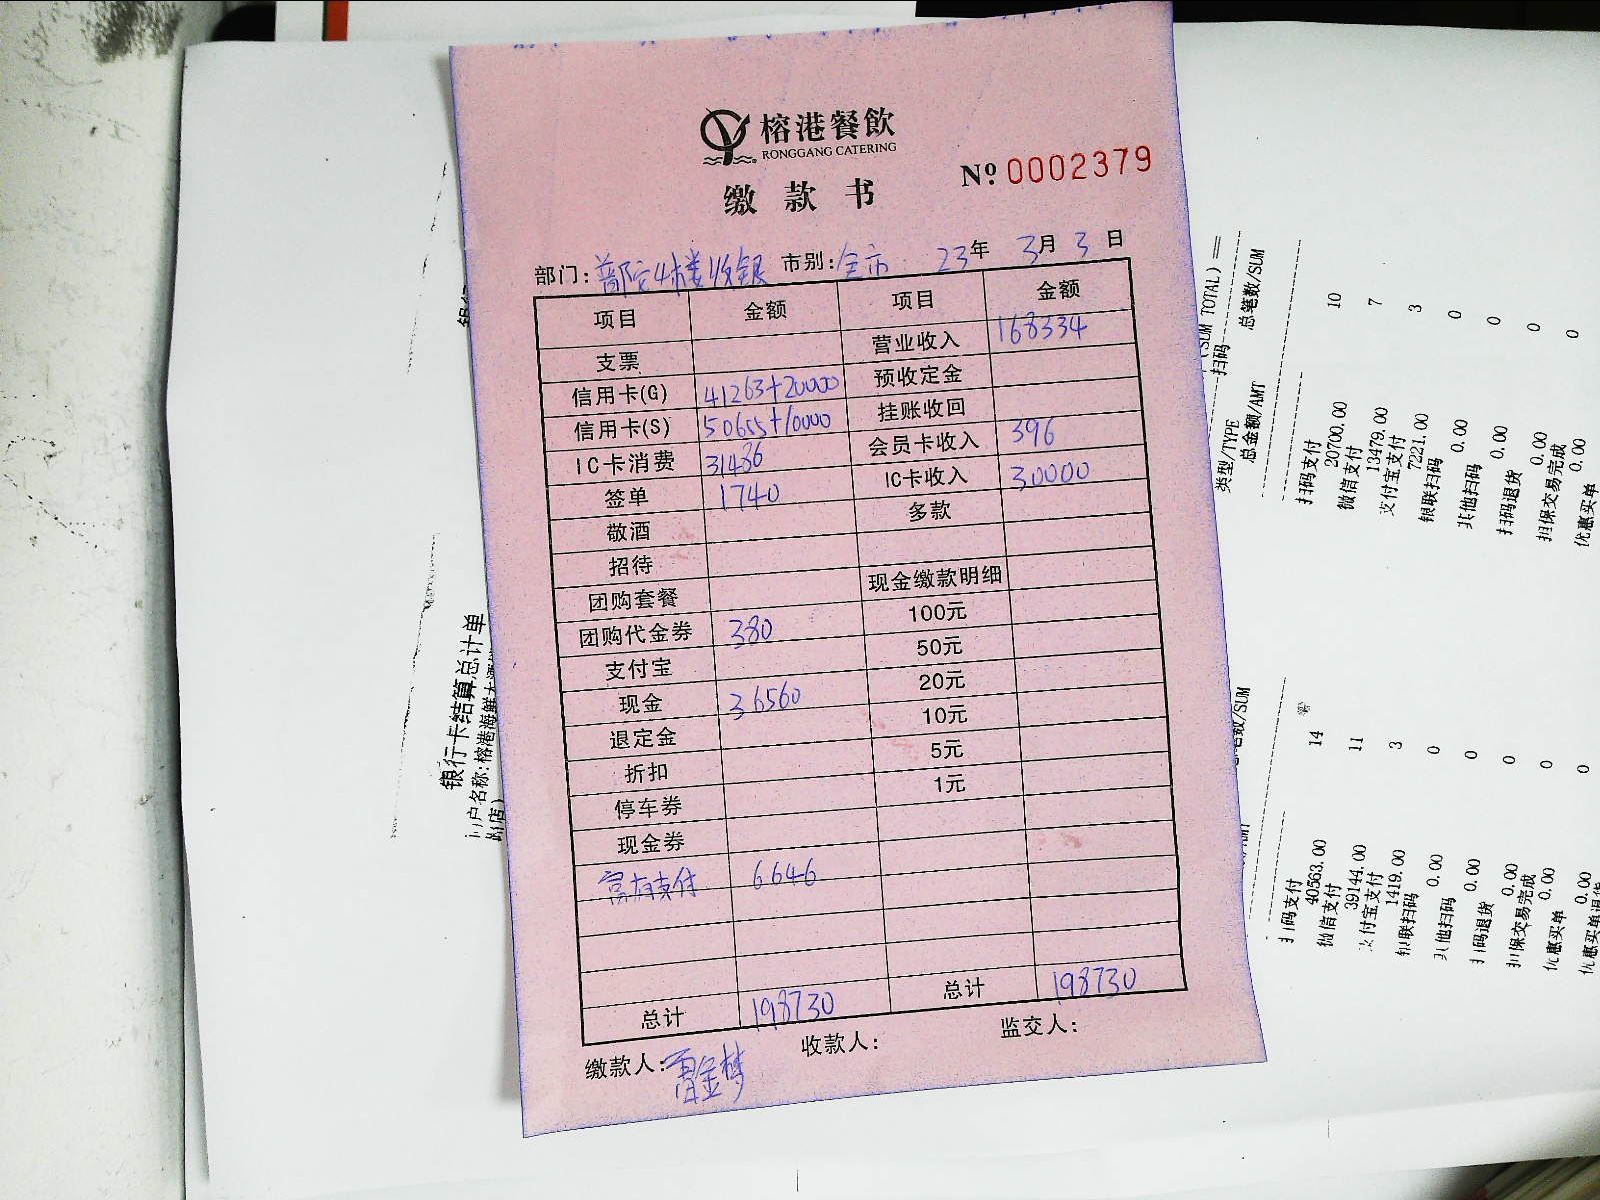 榕港餐飲
RONGGANG CATERING
缴款书
№ 0002379
部门: 普陀4楼收银 市别: 全市 23年 3月 3日
项目 金额 项目 金额
支票 营业收入 168334
信用卡(G) 41263+20000 预收定金
信用卡(S) 50655+10000 挂账收回
IC卡消费 31486 会员卡收入 396
签单 1740 IC卡收入 30000
敬酒 多款
招待
团购套餐 现金缴款明细
团购代金券 380 100元
支付宝 50元
现金 36560 20元
退定金 10元
折扣 5元
停车券 1元
现金券
富友支付 6646
总计 198730 总计 198730
缴款人: 收款人: 监交人:
银行卡结算总计单
户名称:榕港海鲜大酒
店)
(SUM TOTAL)
类型/TYPE 扫码
总金额/AMT 总笔数/SUM
扫码支付
20700.00 10
微信支付
13479.00 7
支付宝支付
7221.00 3
银联扫码
0.00 0
其他扫码
0.00 0
扫码退货
0.00 0
担保交易完成
0.00 0
优惠买单
扫码支付
40563.00 14
微信支付
39144.00 11
支付宝支付
1419.00 3
银联扫码
0.00 0
其他扫码
0.00 0
扫码退货
0.00 0
担保交易完成
0.00 0
优惠买单
0.00 0